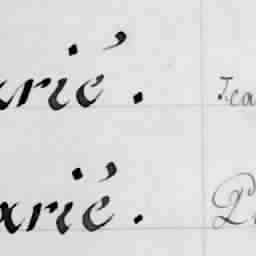 arié. Jea
arié. P